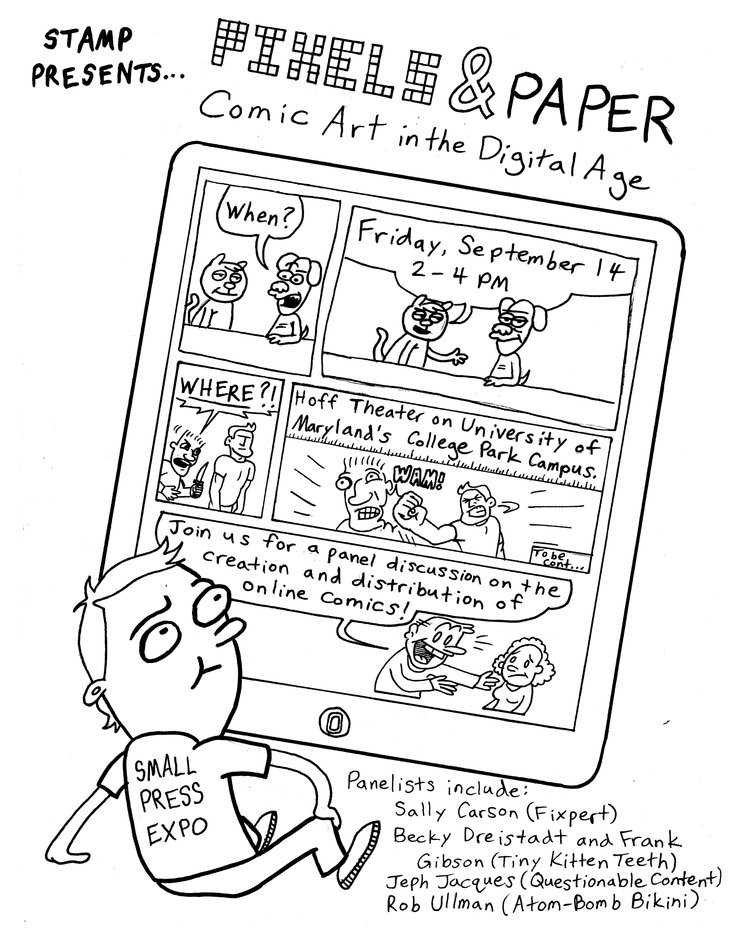 STAMP
PRESENTS...
PIXELS & PAPER
Comic Art in the Digital Age
When?
Friday, September 14
2-4 PM
WHERE?!
Hoff Theater on University of
Maryland's College Park Campus.
WAM!
To be
cont...
Join us for a panel discussion on the
creation and distribution of
online comics!
SMALL
PRESS
EXPO
Panelists include:
Sally Carson (Fixpert)
Becky Dreistadt and Frank
Gibson (Tiny Kitten Teeth)
Jeph Jacques (Questionable Content)
Rob Ullman (Atom-Bomb Bikini)